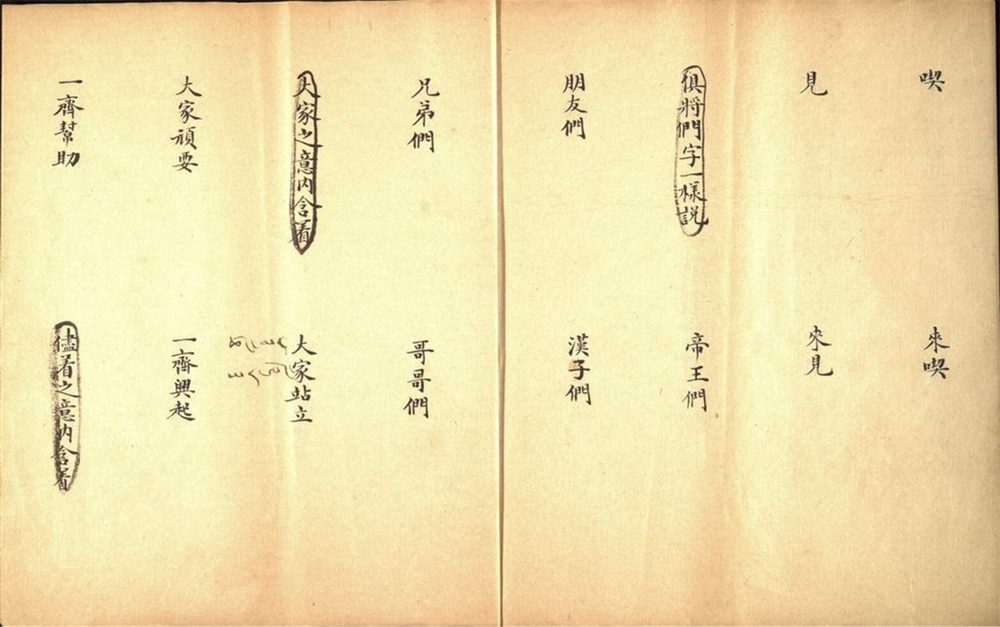 喫
來喫
見
來見
俱將們字一樣説
帝王們
朋友們
漢子們
兄弟們
哥哥們
大家之意内含着
大家站立
大家頑要
一齊興起
一齊幫助
儘着之意内含着